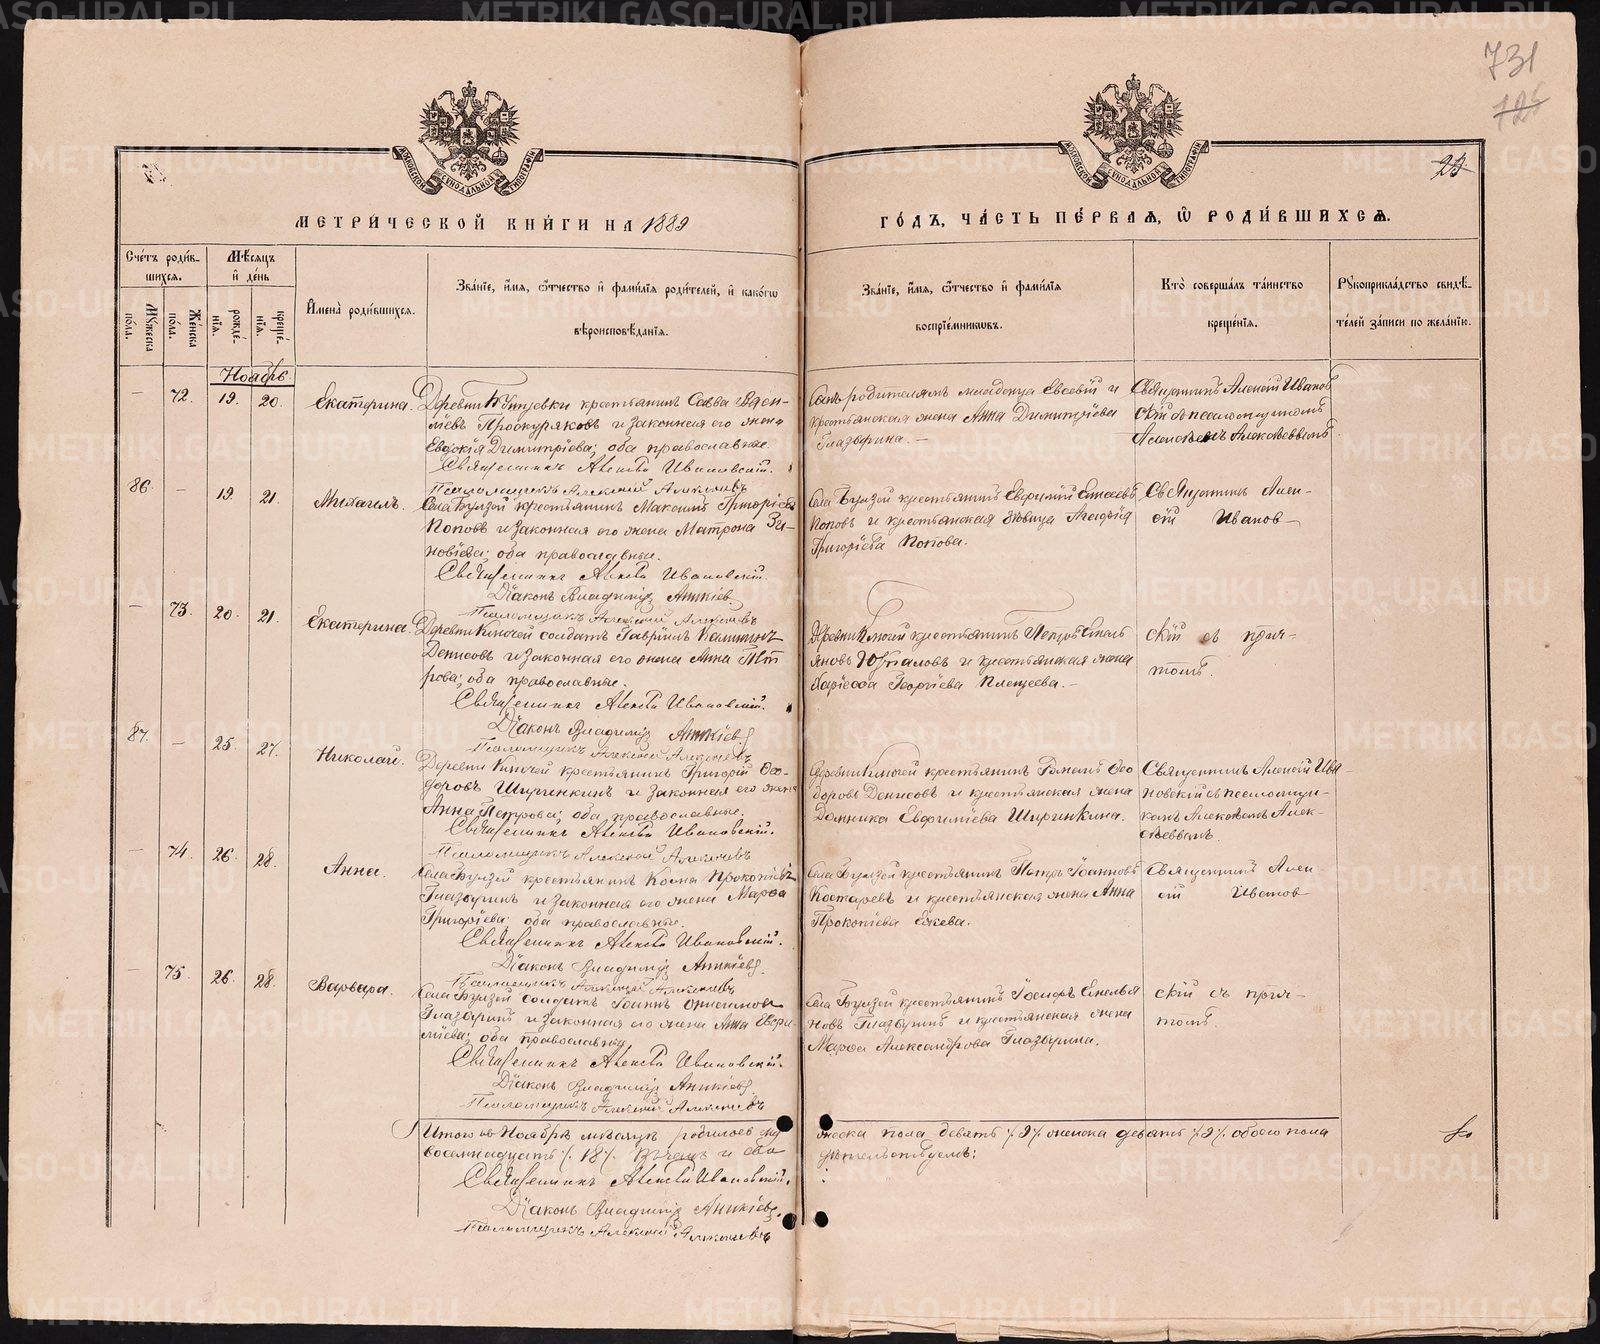 METRIKI.GASO-URAL.RU
731
726
23
МОСКОВСКОЙ СѴНОДАЛЬНОЙ ТИПОГРАФІИ
МОСКОВСКОЙ СѴНОДАЛЬНОЙ ТИПОГРАФІИ
МЕТРИ́ЧЕСКОЙ КНИ́ГИ НА 1889
ГО́ДЪ, ЧА́СТЬ ПЕ́РВАЯ, Ѡ҆ РОДИ́ВШИХСЯ.
Сче́тъ роди́вшихся.
Мѹ́жеска по́ла.
Же́нска по́ла.
Мѣ́сяцъ и҆ де́нь
рожде́нїя.
креще́нїя.
И҆мена̀ роди́вшихся.
Зва́нїе, и҆́мя, ѻ҆́тчество и҆ фами́лїя роди́телей, и҆ како́гѡ
вѣроисповѣ́данїя.
Зва́нїе, и҆́мя, ѻ҆́тчество и҆ фами́лїя
воспрїе́мникѡвъ.
Кто̀ соверша́лъ та́инство
креще́нїя.
Рѹкоприкла́дство свидѣ́-
телей за́писи по жела́нїю.
Ноябрь.
— 72. 19. 20. Екатерина.
Деревни крестьянинъ Савва
Проскуряковъ и законная его жена
Евдокія Димитріева; оба православные.
Священникъ Алексѣй Ивановскій.
Псаломщикъ Алексѣй Алексѣевъ
Сынъ родителямъ Евсевій и
крестьянская жена Анна Димитріева
Глазырина. —
Священникъ Алексій Иванов
скій съ псаломщикомъ
Алексѣемъ Алексѣевымъ
86. — 19. 21. Михаилъ.
Села Булзей крестьянинъ Максимъ Григорьевъ
Поповъ и законная его жена Матрона Зи-
новіева; оба православные.
Священникъ Алексѣй Ивановскій.
Діаконъ Владиміръ Аникіев
Псаломщикъ Алексѣй Алексѣевъ
Села Булзей крестьянинъ Евфимій
Поповъ и крестьянская дѣвица Агафія
Григоріева Попова.
Священникъ Алек-
сій Иванов-
— 73. 20. 21. Екатерина.
Деревни Ключей солдатъ Гавріилъ Калинин
Денисовъ и законная его жена Анна Пет
рова; оба православные.
Священникъ Алексѣй Ивановскій.
Діаконъ Владиміръ Аникіев
Псаломщикъ Алексѣй Алексѣевъ
Деревни Ключей крестьянинъ Петръ Емель
яновъ Юшаловъ и крестьянская жена
Георгіева Плещеева. —
скій съ прич-
томъ.
87. — 25. 27. Николай.
Деревни Ключей крестьянинъ Григорій Ѳео-
доровъ Ширинкинъ и законная его жена
Анна Петрова; оба православные.
Священникъ Алексѣй Ивановскій.
Псаломщикъ Алексѣй Алексѣевъ
Деревни Ключей крестьянинъ Ѳео
доровъ Денисовъ и крестьянская жена
Домника Евфиміева Ширинкина.
Священникъ Алексій Ива
новскій съ псаломщи-
комъ Алексѣемъ Алек-
сѣевымъ.
— 74. 26. 28. Анна.
Села Булзей крестьянинъ Косма Прокопіевъ
Глазыринъ и законная его жена Марѳа
Григоріева; оба православные.
Священникъ Алексѣй Ивановскій.
Діаконъ Владиміръ Аникіев.
Псаломщикъ Алексѣй Алексѣевъ
Села Булзей крестьянинъ Петръ Іоанновъ
Костаревъ и крестьянская жена Анна
Прокопіева Ежева.
Священникъ Алек
сій Иванов-
— 75. 26. 28. Варвара.
Села Булзей солдатъ Іоаннъ Онисимовъ
Глазыринъ и законная его жена Анна Евфи-
міева; оба православные
Священникъ Алексѣй Ивановскій.
Діаконъ Владиміръ Аникіев.
Псаломщикъ Алексѣй Алексѣевъ
Села Булзей крестьянинъ Іосифъ Емелья
новъ Глазыринъ и крестьянская жена
Марѳа Александрова Глазырина.
скій съ прич-
томъ.
Итого въ Ноябрѣ мѣсяцѣ родилось му
жеска пола девять /9/ женска девять /9/ обоего пола
восемнадцать /18/. Въ чемъ и сви
дѣтельствуемъ:
Священникъ Алексѣй Ивановскій.
Діаконъ Владиміръ Аникіев.
Псаломщикъ Алексѣй Алексѣевъ